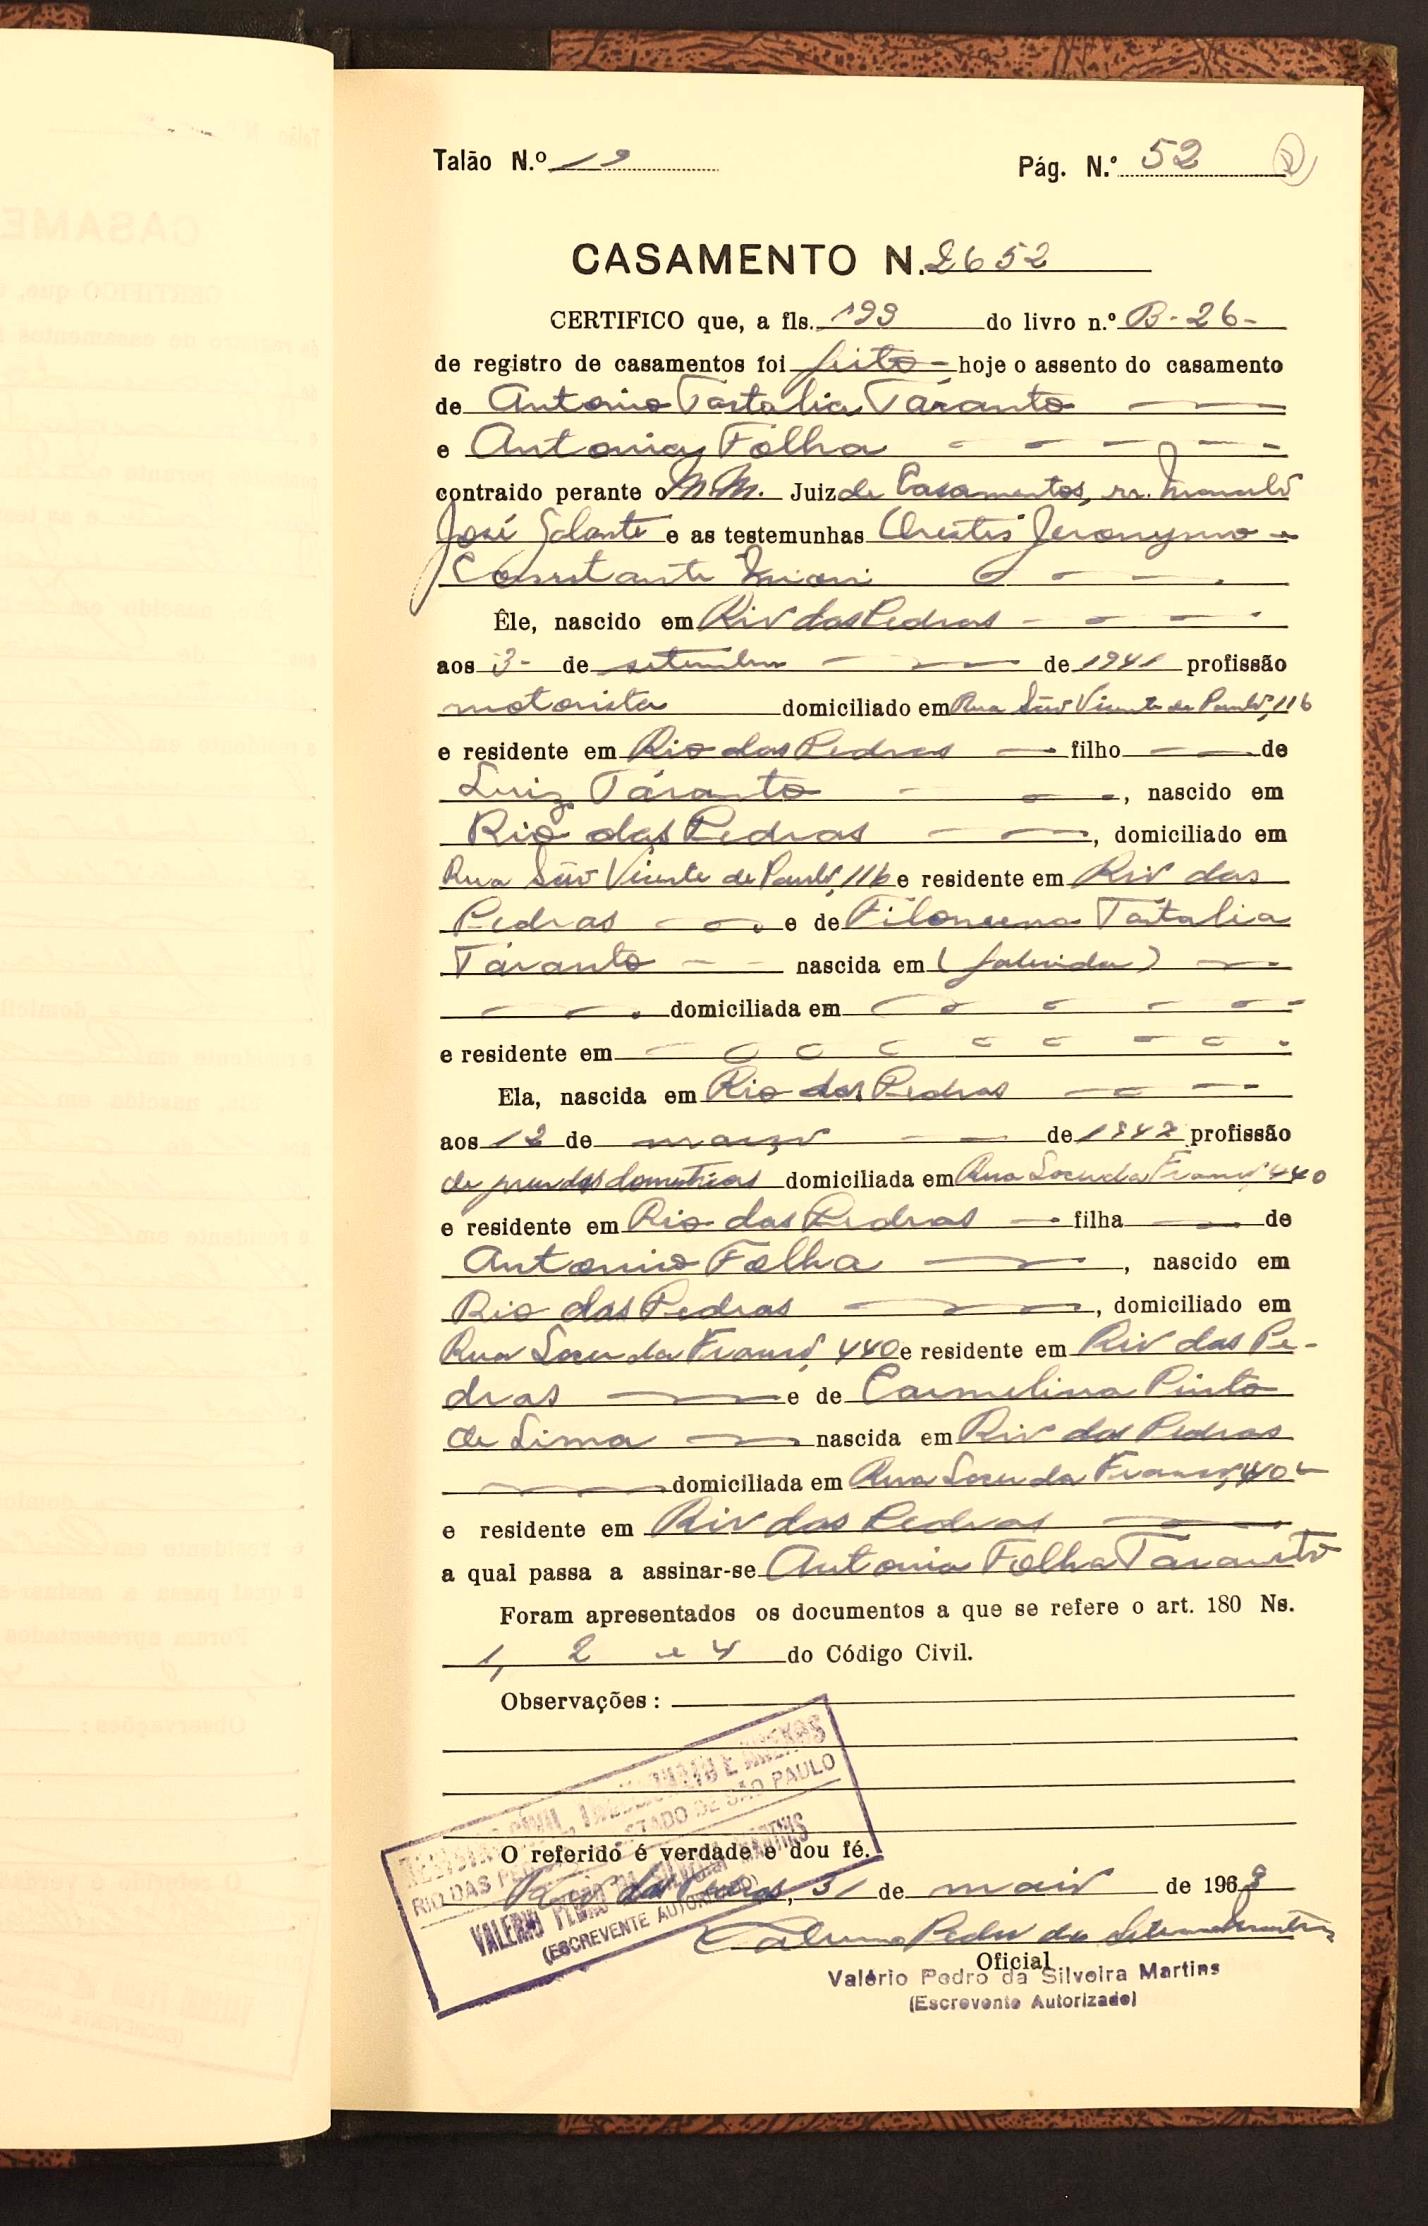 Talão N.º 19 Pág. N.º 52
CASAMENTO N. 2652
CERTIFICO que, a fls. 199 do livro n.º B-26-
de registro de casamentos foi feito - hoje o assento do casamento
de Antonio Tartalia Táranto
e Antonia Folha
contraido perante o M.M. Juiz de Casamentos, sr.
José Galante e as testemunhas Orestes Jeronymo e
Constante
Êle, nascido em Rio das Pedras
aos 3- de setembro de 1941 profissão
motorista domiciliado em Rua São Vicente de Paulo, 116
e residente em Rio das Pedras filho de
Luiz Táranto , nascido em
Rio das Pedras , domiciliado em
Rua São Vicente de Paulo, 116 e residente em Rio das
Pedras e de Filomena Tartalia
Táranto nascida em (falecida)
domiciliada em
e residente em
Ela, nascida em Rio das Pedras
aos 12 de março de 1947 profissão
de prendas domesticas domiciliada em Rua 440
e residente em Rio das Pedras filha de
Antonio Folha , nascido em
Rio das Pedras , domiciliado em
Rua 440 e residente em Rio das Pe-
dras e de Carmelina Pinto
de Lima nascida em Rio das Pedras
domiciliada em Rua
e residente em Rio das Pedras
a qual passa a assinar-se Antonia Folha Táranto
Foram apresentados os documentos a que se refere o art. 180 Ns.
1, 2 e 4 do Código Civil.
Observações:
REGISTRO CIVIL, E ANEXAS
RIO DAS PEDRAS ESTADO DE SÃO PAULO
VALÉRIO PEDRO DA SILVEIRA MARTINS
(ESCREVENTE AUTORIZADO)
O referido é verdade e dou fé.
Rio das Pedras, 31 de maio de 1969
Valerio Pedro da Silveira Martins
Oficial
Valério Pedro da Silveira Martins
(Escrevente Autorizado)